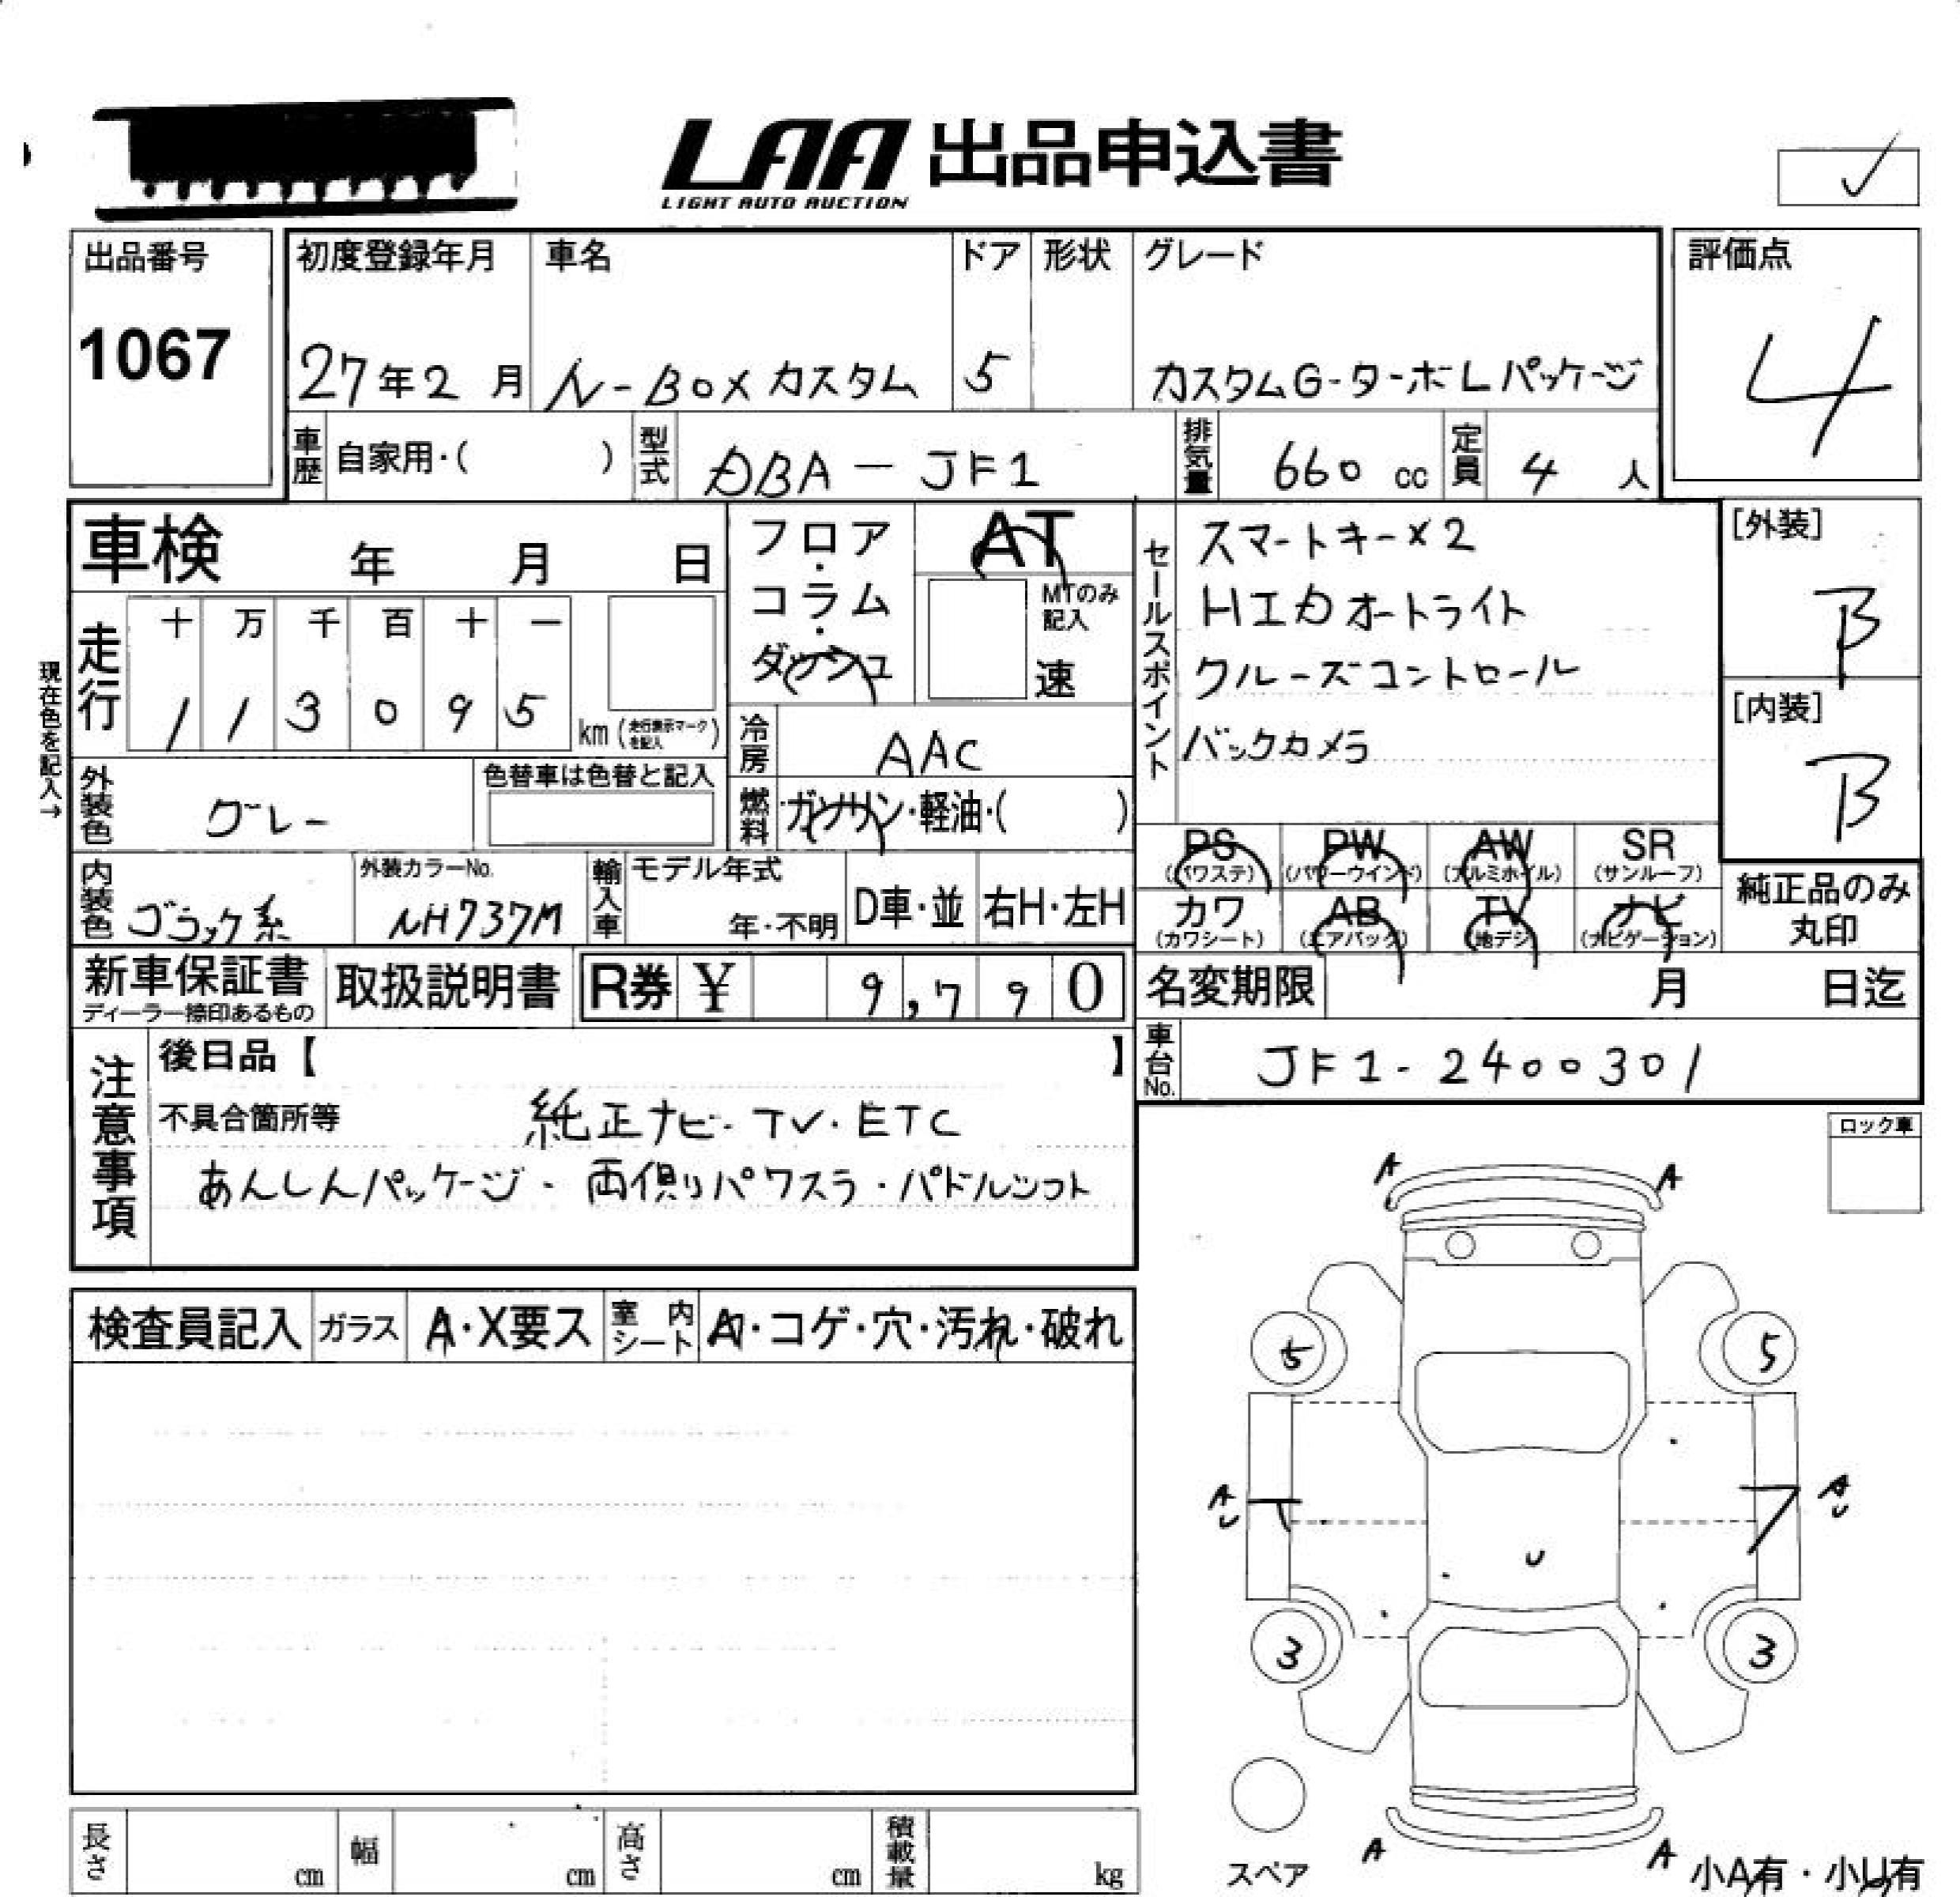 LAA 出品申込書
LIGHT AUTO AUCTION
出品番号
1067
初度登録年月
27年2月
車名
N-BOXカスタム
ドア
5
形状
グレード
カスタムG-ターボLパッケージ
評価点
4
車歴 自家用・( )
型式 DBA-JF1
排気量 660 cc
定員 4 人
車検 年 月 日
現在色を記入→
走行
十 万 千 百 十 一
1 1 3 0 9 5
km(走行表示マークを記入)
フロア・コラム・ダッシュ
AT
MTのみ記入
速
冷房 AAC
燃料 ガソリン・軽油・( )
外装色 グレー
色替車は色替と記入
内装色 ブラック系
外装カラーNo.
NH737M
輸入車
モデル年式
年・不明
D車・並
右H・左H
セールスポイント
スマートキー×2
HIDオートライト
クルーズコントロール
バックカメラ
[外装]
B
[内装]
B
PS (パワステ)
PW (パワーウインド)
AW (アルミホイル)
SR (サンルーフ)
カワ (カワシート)
AB (エアバッグ)
TV (地デジ)
ナビ (ナビゲーション)
純正品のみ丸印
新車保証書
ディーラー捺印あるもの
取扱説明書
R券 ¥ 9,790
名変期限 月 日迄
車台No. JF1-2400301
注意事項
後日品【 】
不具合箇所等
純正ナビ・TV・ETC
あんしんパッケージ・両側パワスラ・パドルシフト
ロック車
検査員記入
ガラス A・X要ス
室内シート A・コゲ・穴・汚れ・破れ
A A
5 5
A U
A U
U
3 3
A A
スペア
小A有・小U有
長さ cm
幅 cm
高さ cm
積載量 kg